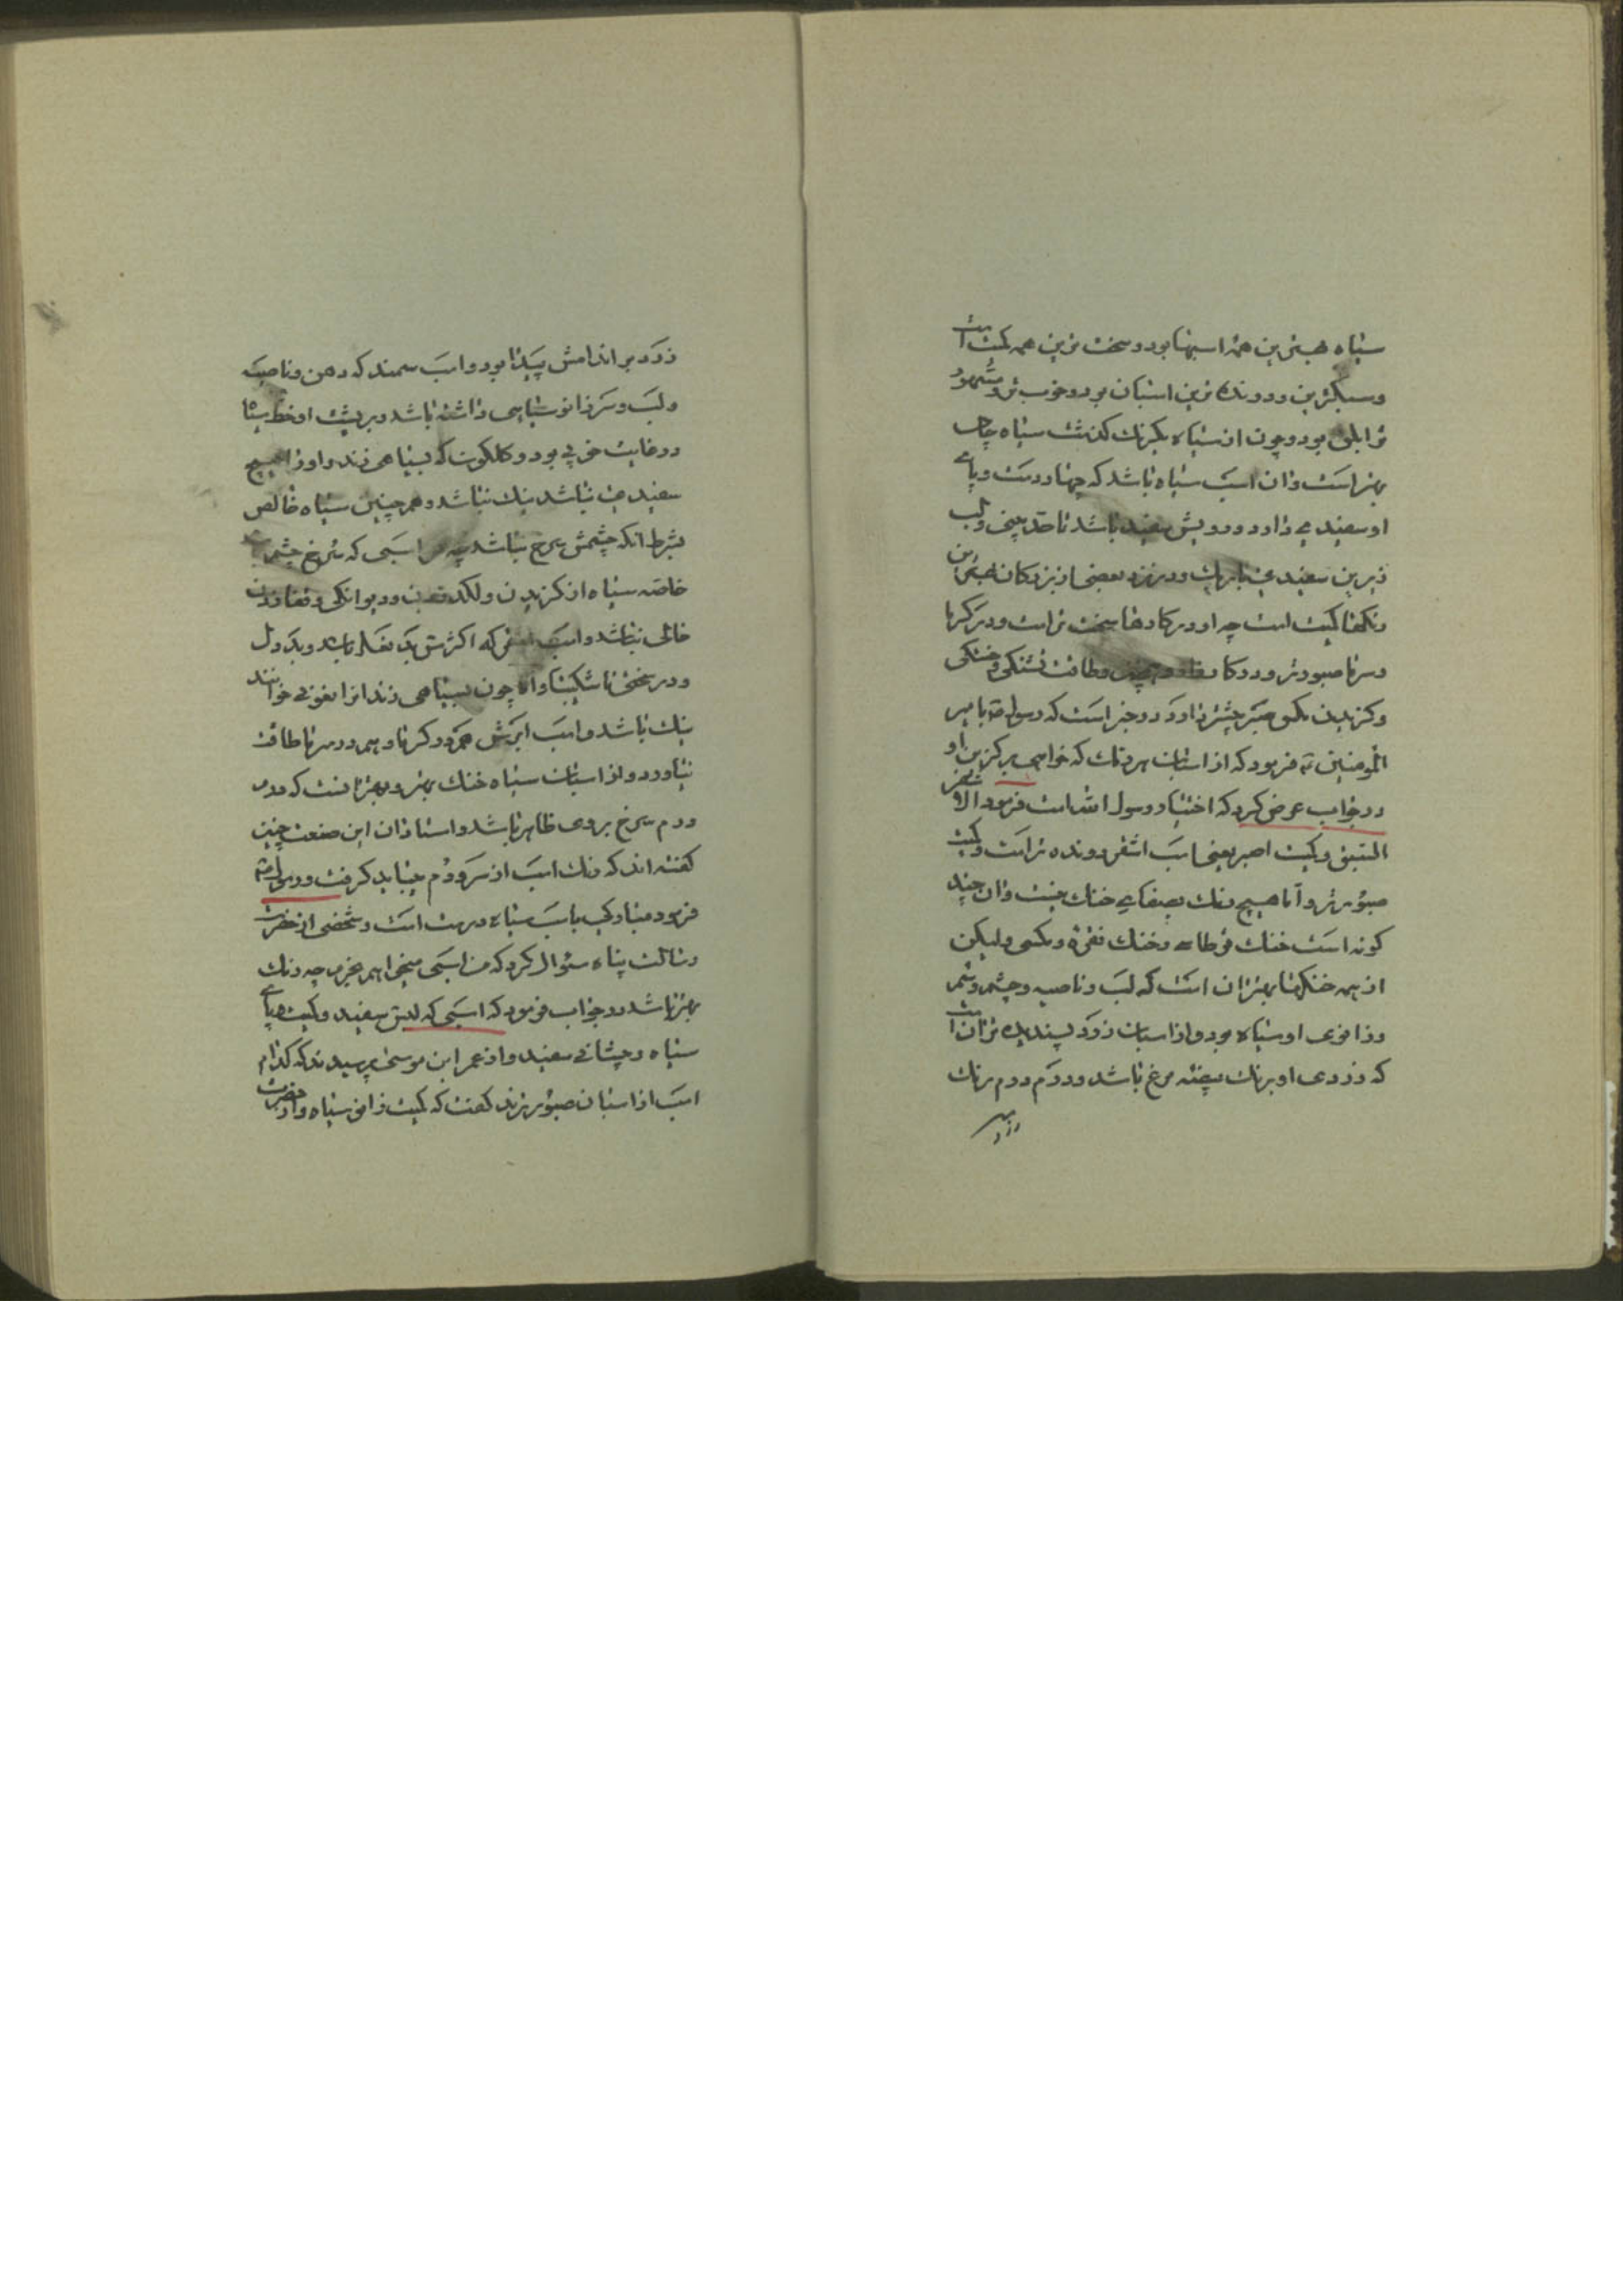 سیاه بهترین همه اسبها بود و سخت ترین همه کمیت است
و سبکترین و دونده ترین اسبان بود و خوب تر و مشهور
تر ابلق بود و چون از سیاه یکرنک کذشت سیاه چال
بهتر است و ان اسب سیاه باشد که چهار دست و پای
او سفیدیی دارد و رویش سفید باشد تا حد بینی و لب
زیرین سفیدیی باریک و در نزد بعضی از بزرکان بهترین
رنکها کمیت است چه او در کارها سخت تر است و در کرما
و سرما صبورتر و در کار و طاقت تشنکی و خستکی
و کزیدن مکس صبر بیشتر دارد و در خبر است که رسول ص با امیر
المومنین ع فرمود که از اسبان هر رنک که خواهی برکزین او
در جواب عرض کرد که اختیار رسول الله است فرمود الاشقر
اسبق و کمیت اصبر یعنی اسب اشقر دونده تر است و کمیت
صبورتر و اما هیچ رنک بصفای خنک نیست و ان چند
کونه است خنک قرطاسی و خنک نقره و مکسی ولیکن
از همه خنکها بهتر ان است که لب و ناصیه و چشم و سم
و زانوی او سیاه بود و از اسبان زرد پسندیده تر ان است
که زردی او برنک بیضه مرغ باشد و درم درم برنک
زرد بر
زرد بر اندامش پیدا بود و اسب سمند که دهن و ناصیه
و لب و سر زانو سیاهی داشته باشد و بر پشت او خط سیاه
در غایت خوبی بود و کلکون که بسیاهی زند و او را هیچ
سفیدیی نباشد نیک نباشد و همچنین سیاه خالص
بشرط انکه چشمش سرخ نباشد چه هر اسبی که سرخ چشم
خاصه سیاه از کزیدن و لکد زدن و دیوانکی
خالی نباشد و اسب اشقر که اکثرش بد نعل باشد و بد دل
و در سختی ناشکیبا و اما چون بسیاهی زند انرا بغونی خوانند
نیک باشد و اسب ابرش هم در کرما و هم در سرما طاقت
نیاورد و از اسبان سیاه خنک بهتر و بهتر انست که درم
درم سرخ بروی ظاهر باشد و استادان این صنعت چنین
کفته اند که رنک اسب از سر و دم میباید کرفت و رسول ص
فرمود مبارکی با اسب سیاه درست است و شخصی از حضرت
رسالت پناه سئوال کرد که من اسبی میخواهم بخرم چه رنک
بهتر باشد در جواب فرمود که اسبی که لبش سفید و کمیت و پای
سیاه و پیشانی سفید و از عمر ابن موسی پرسیدند که کدام
اسب از اسبان صبورترند کفت که کمیت زانو سیاه و از حضرت